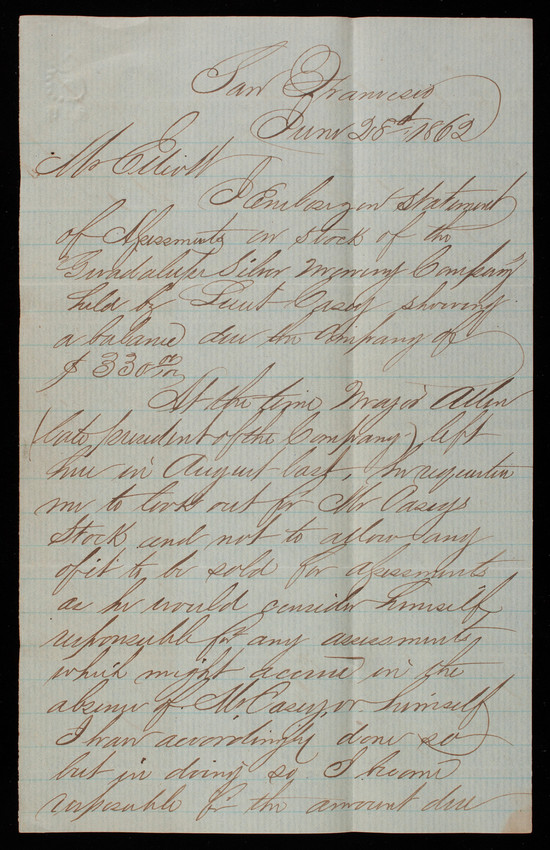 San Francisco
June 28th 1862
Mr Elliott
I Enclose you statement
of Assessments on stock of the
Guadalupe Silver Mining Company
held by Lieut Casey showing
a balance due the Company of
$ 330 00/100
At the time Major Allen
(late president of the Company) left
here in August last, he requested
me to look out for Mr Caseys
Stock and not to allow any
of it to be sold for assessments
as he would consider himself
responsible for any assessments
which might accrue in the
absence of Mr Casey or himself
I have accordingly done so
but in doing so I became
responsible for the amount due